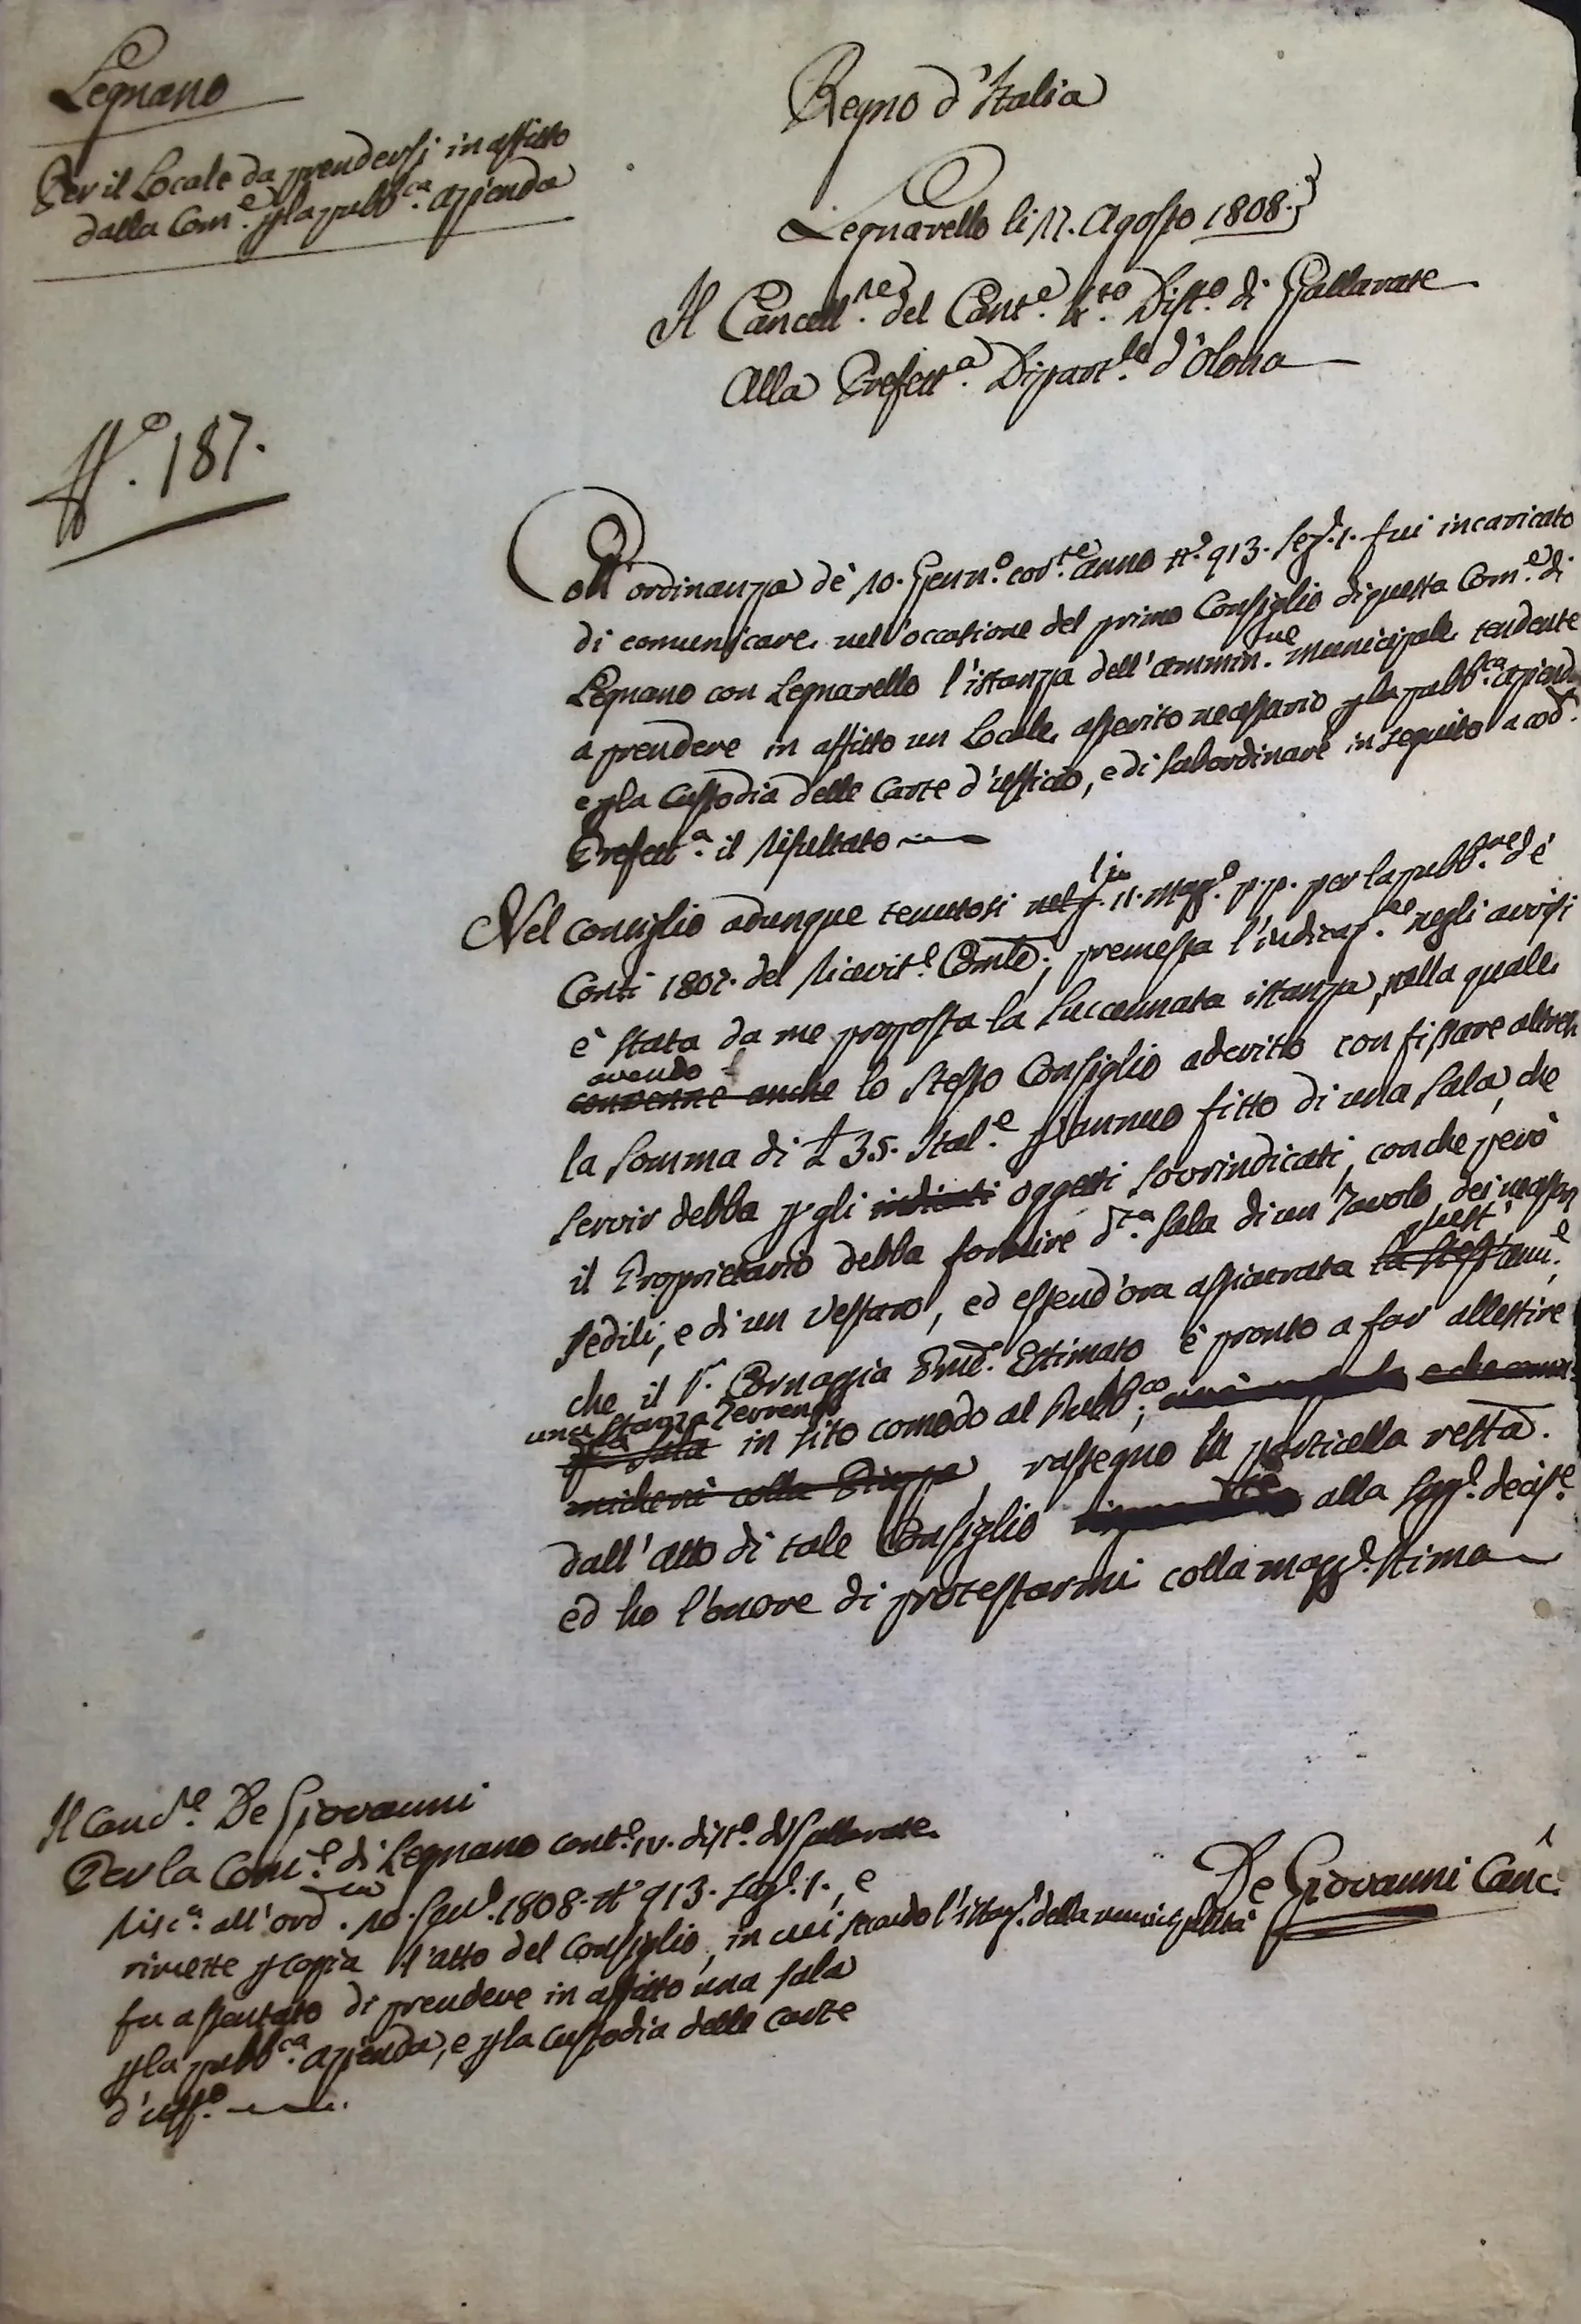 Legnano
Per il Locale da prendersi in affitto
dalla Com.e p la pubb.ca azienda
N.o 187.
Regno d'Italia
Legnarello li 17. Agosto 1808.
Il Cancell.re del Cant.e 4.to Dist.o di Gallarate
Alla Prefett.a Dipart.le d'Olona
Coll'ordinanza de' 10. Genn.o cor.te anno N.o 913. Sez.e 1. fui incaricato
di comunicare nell'occasione del primo Consiglio di questa Com.e di
Legnano con Legnarello l'istanza dell'ammin.ne municipale tendente
a prendere in affitto un Locale asserito necessario p la pubb.ca aziend
e p la custodia delle Carte d'ufficio, e di subordinare in seguito a cod.
Prefett.a il risultato
Nel consiglio adunque tenutosi li 11. Mag.o p.p. per la pubb.ne de'
Conti 1807. del ricevit.e Comle; premessa l'indicaz.e negli avvisi
è stata da me proposta la succennata istanza, nella quale
avendo
convenne anche lo stesso Consiglio aderitto con fissare altresì
la somma di L 35. Ital.e p annuo fitto di una sala, che
servir debba p gli indicati oggetti sovrindicati, con che però
il Proprietario debba fornire d.ta sala di un Tavolo, dei
quest'
sedili, e di un Vestaro, ed essend'ora assicurata la stess'amm.e
che il S.r Cornaggia Estimato è pronto a far allestire
una stanza Terrena
sala in sito comodo al Pubb.co;
colla, rassegno la particella
dall'atto di tale Consiglio alla sagg.e decis.e
ed ho l'onore di protestarmi colla magg.e stima
De Giovanni Canc.
Il Canc.re De Giovanni
Per la Com.e di Legnano cant.e IV. dist.o di Gallarate
risc.a all'ord.za 10. Gen.o 1808. N.o 913. Sez.e 1., e
rimette p copia l'atto del Consiglio, in cui secondo l'istanz.a della municipalità
fu assentato di prendere in affitto una sala
p la pubb.ca azienda, e p la custodia delle carte
d'uff.o